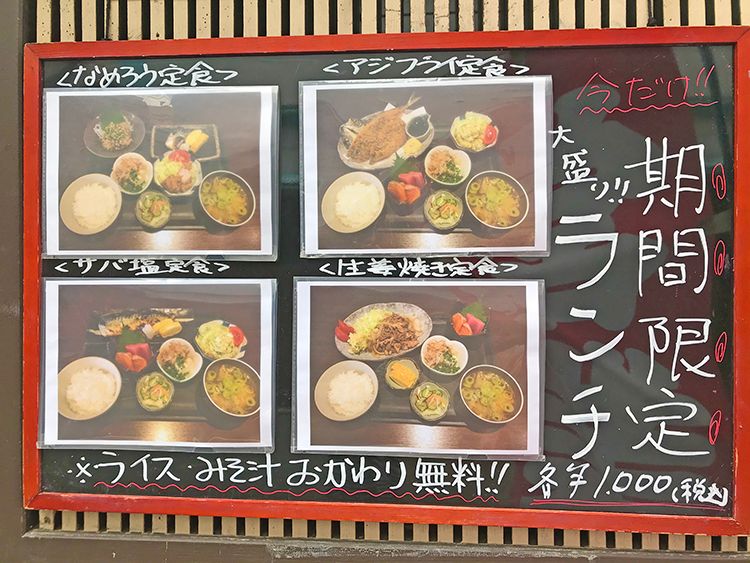 <なめろう定食>
<アジフライ定食>
<サバ塩定食>
<生姜焼き定食>
今だけ!!
期間限定
大盛り!!
ランチ
※ライス・みそ汁おかわり無料!!
各¥1.000(税込)